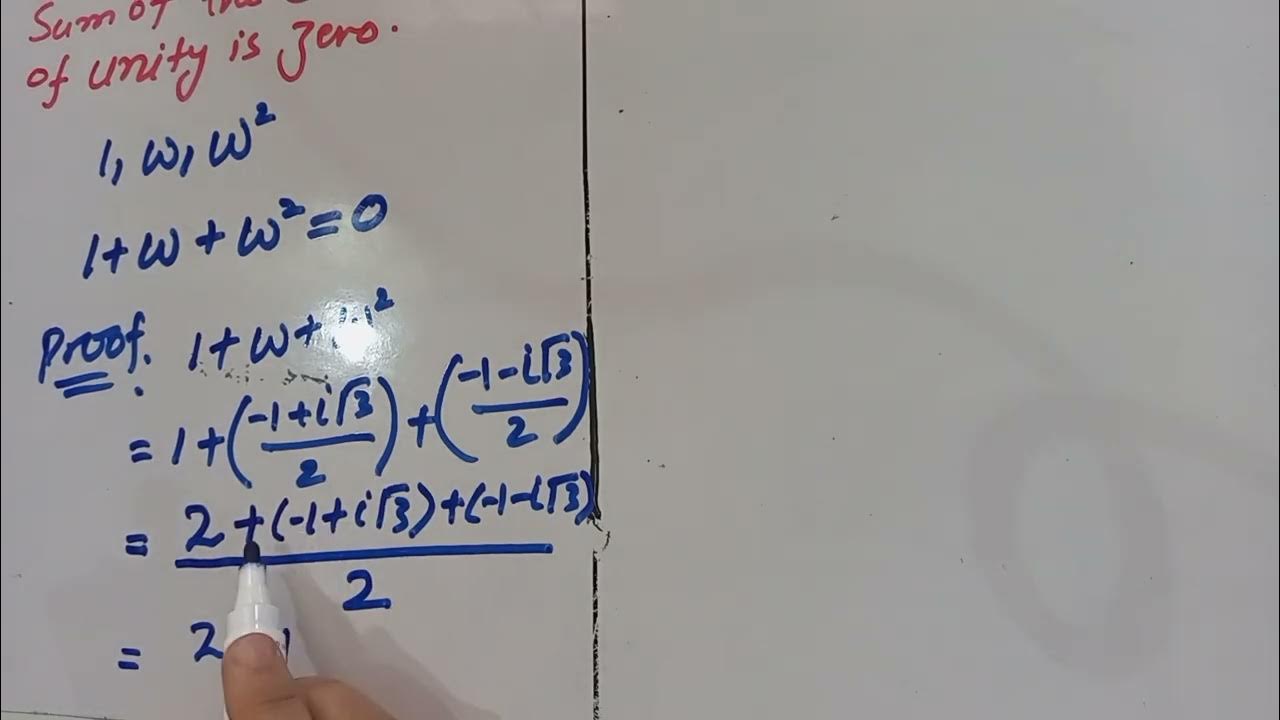 Sum of the
of unity is zero.
1, ω, ω²
1+ω+ω²=0
Proof. 1+ω+ω²
= 1+(-1+i√3/2)+(-1-i√3/2)
= 2+(-1+i√3)+(-1-i√3)/2
= 2